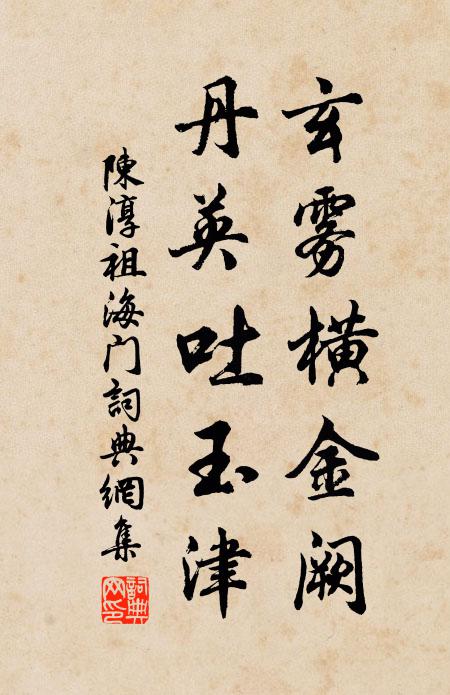 玄雾橫金阙
丹英吐玉津
陳淳祖海门詞典網集
詞典网印